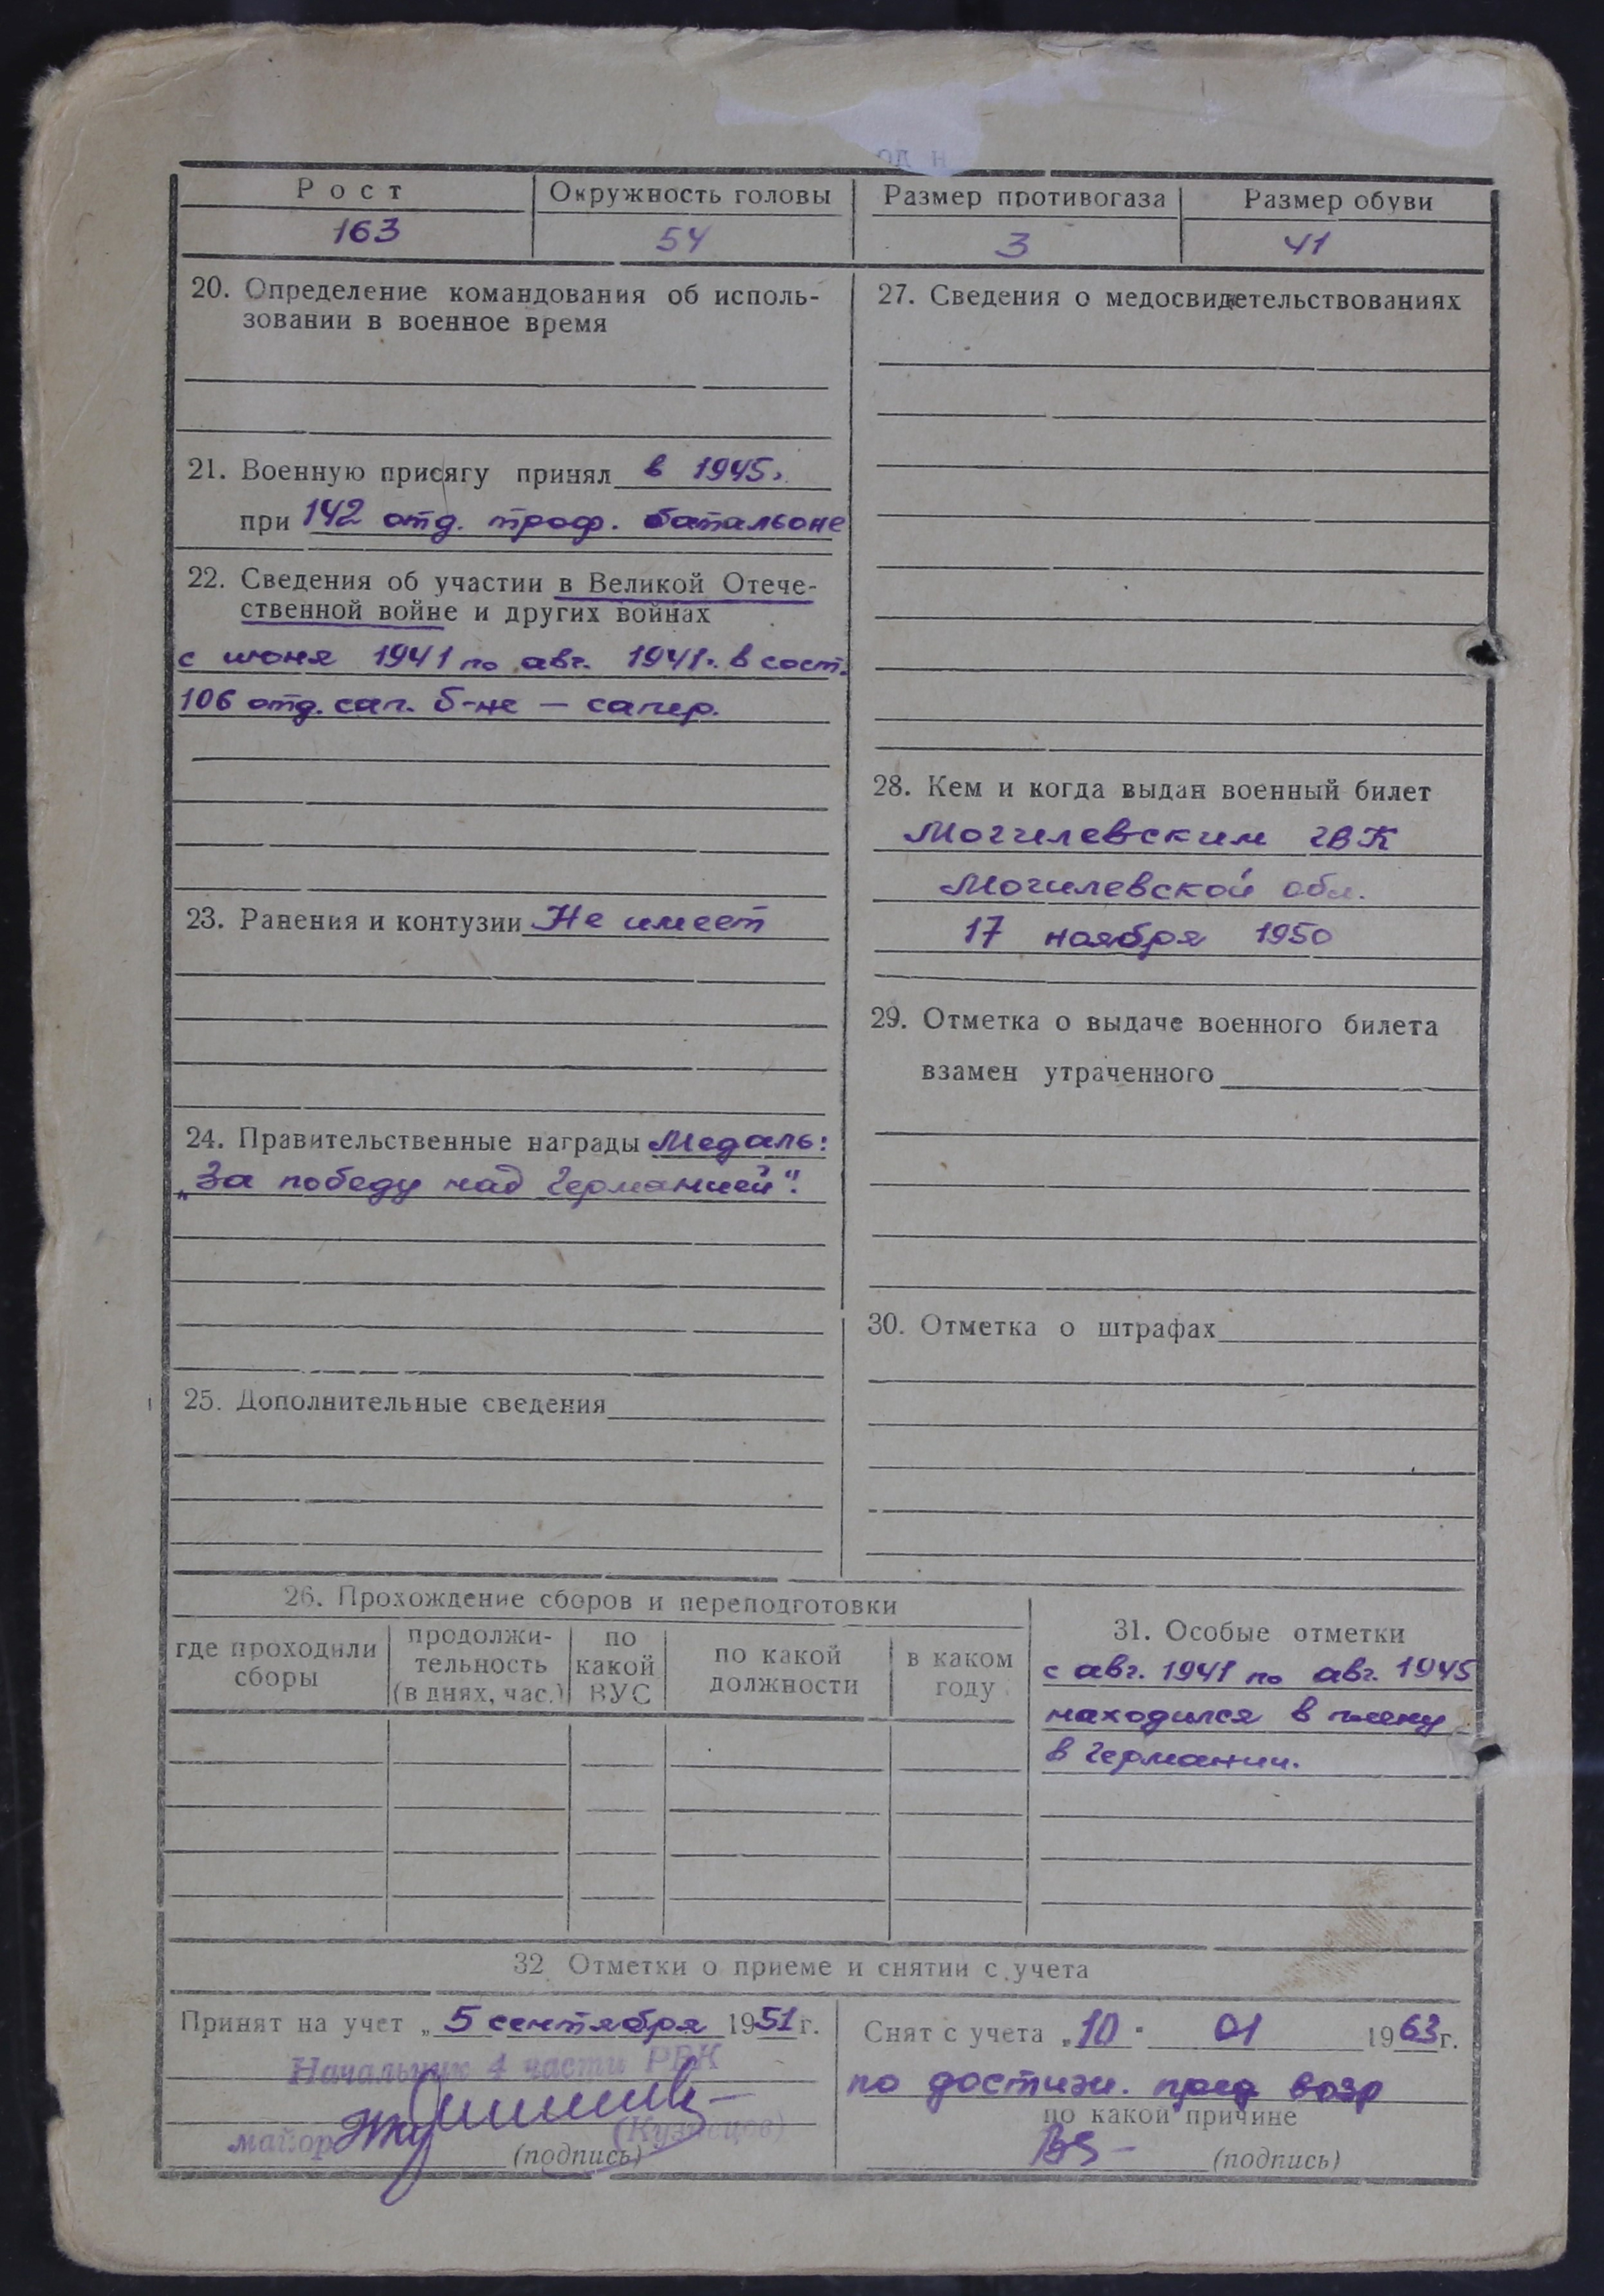 Рост Окружность головы Размер противогаза Размер обуви
163 54 3 41
20. Определение командования об исполь-
зовании в военное время
21. Военную присягу принял в 1945г.
при 142 отд. троф. батальоне
22. Сведения об участии в Великой Отече-
ственной войне и других войнах
с июня 1941 по авг. 1941г. в сост.
106 отд. сап. б-не — сапер.
23. Ранения и контузии Не имеет
24. Правительственные награды Медаль:
„За победу над Германией".
25. Дополнительные сведения
27. Сведения о медосвидетельствованиях
28. Кем и когда выдан военный билет
Могилевским ГВК
Могилевской обл.
17 ноября 1950
29. Отметка о выдаче военного билета
взамен утраченного
30. Отметка о штрафах
26. Прохождение сборов и переподготовки
где проходили
сборы
продолжи-
тельность
(в днях, час.)
по
какой
ВУС
по какой
должности
в каком
году
31. Особые отметки
с авг. 1941 по авг. 1945
находился в плену
в Германии.
32 Отметки о приеме и снятии с учета
Принят на учет „5 сентября 1951г.
Начальник 4 части РВК
майор (Кузнецов)
(подпись)
Снят с учета „10. 01 1963г.
по достиж. пред возр
по какой причине
(подпись)